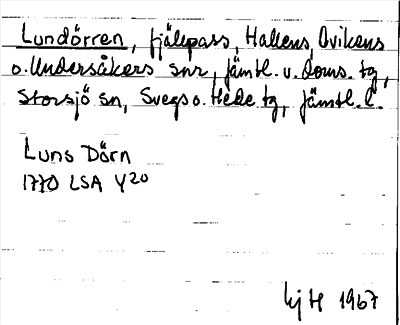 Lundörren, fjällpass, Hallens, Ovikens
o. Undersåkers snr, Jämtl. v. doms. tg,
Storsjö sn, Svegs o. Hede tg, Jämtl. l.
Luns Dörn
1770 LSA Y20
HjH 1967